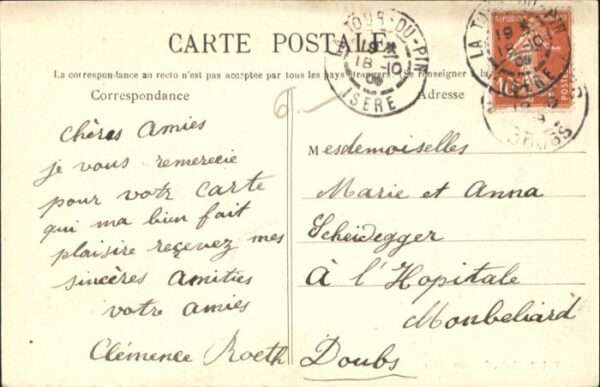 CARTE POSTALE
La correspondance au recto n'est pas acceptée par tous les pays étrangers. Se renseigner à la
Correspondance
Adresse
LA TOUR-DU-PIN
19
18 -10
09
ISÈRE
LA TOUR-DU-PIN
19
18 -10
09
ISÈRE
DOUBS
POSTES
chères amies
je vous remerecie
pour votr carte
qui ma bien fait
plaisire reçevez mes
sincères amities
votre amies
Clémence Roeth
Mesdemoiselles
Marie et Anna
Scheidegger
à l'Hopitale
Monbeliard
Doubs